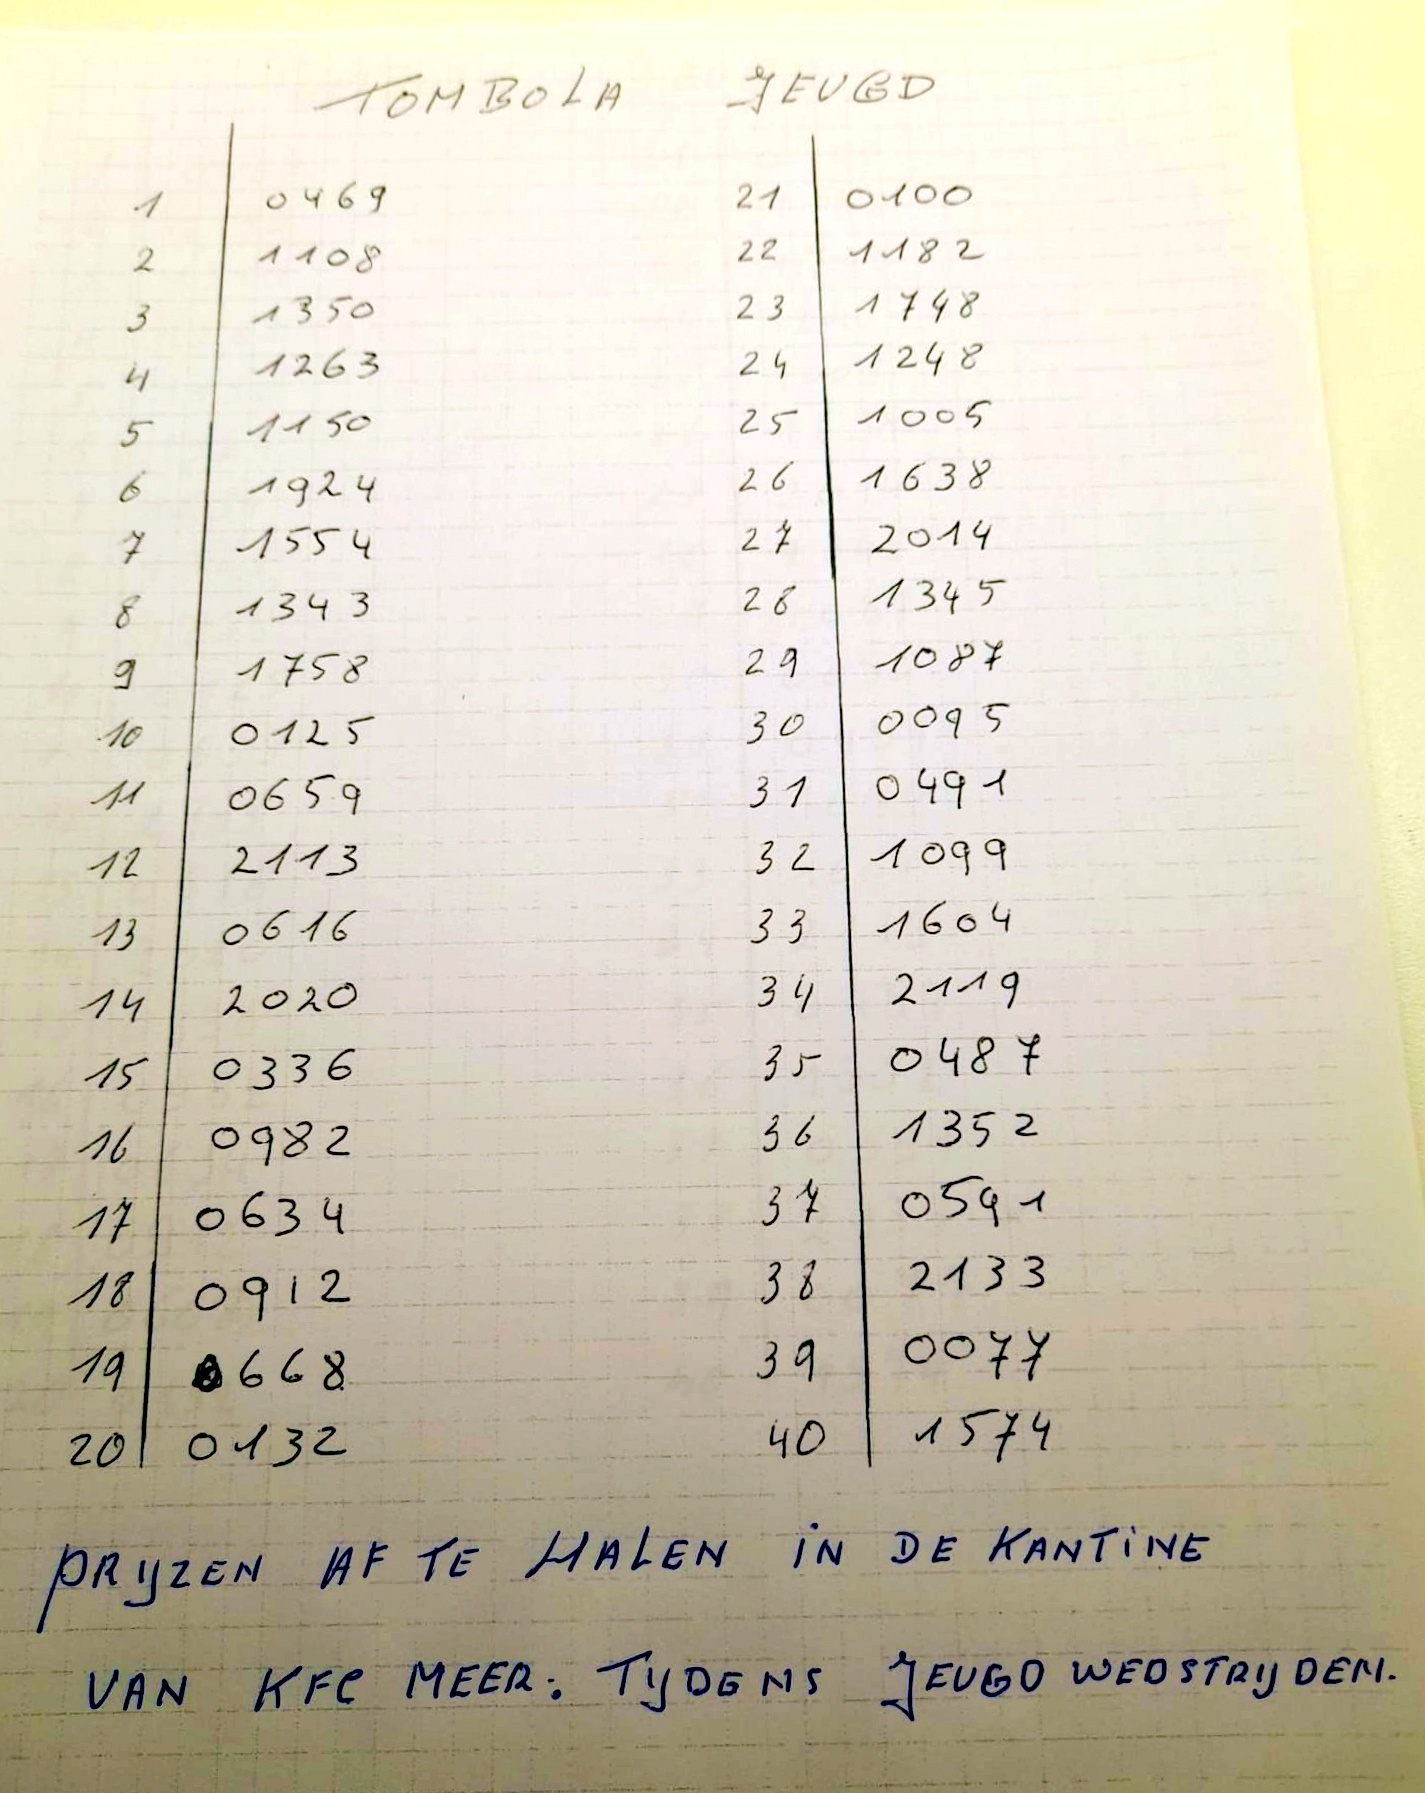 TOMBOLA JEUGD
1 0469 21 0100
2 1108 22 1182
3 1350 23 1748
4 1263 24 1248
5 1150 25 1005
6 1924 26 1638
7 1554 27 2014
8 1343 28 1345
9 1758 29 1087
10 0125 30 0095
11 0659 31 0491
12 2113 32 1099
13 0616 33 1604
14 2020 34 2119
15 0336 35 0487
16 0982 36 1352
17 0634 37 0591
18 0912 38 2133
19 0668 39 0077
20 0132 40 1574
PRIJZEN AF TE HALEN IN DE KANTINE
VAN KFC MEER: TIJDENS JEUGDWEDSTRIJDEN.